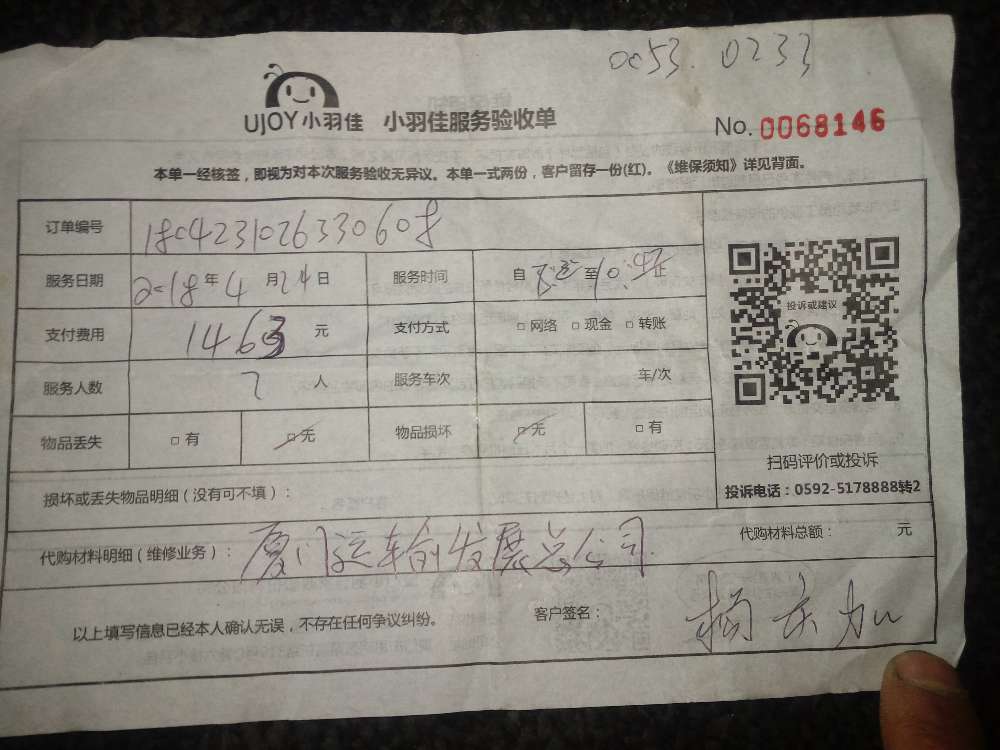 0053.0233
UJOY小羽佳 小羽佳服务验收单
No. 0068146
本单一经核签，即视为对本次服务验收无异议。本单一式两份，客户留存一份(红)。《维保须知》详见背面。
订单编号 1804231026330608
服务日期 2018年4月24日 服务时间 自 至10: 止
支付费用 1463 元 支付方式 □网络 □现金 □转账
服务人数 2 人 服务车次 车/次
物品丢失 □有 □无 物品损坏 □无 □有
投诉或建议
扫码评价或投诉
投诉电话：0592-5178888转2
损坏或丢失物品明细（没有可不填）：
代购材料明细（维修业务）：厦门运输发展总公司. 代购材料总额： 元
以上填写信息已经本人确认无误，不存在任何争议纠纷。 客户签名：杨庆加